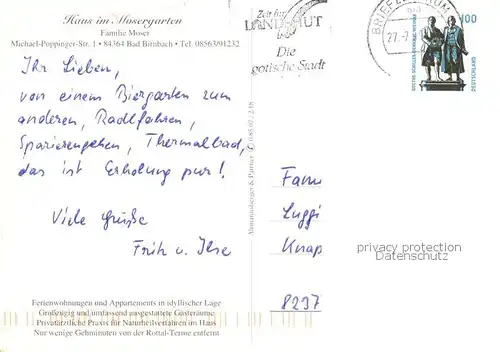 Haus im Mosergarten
Familie Moser
Michael-Poppinger-Str. 1 • 84364 Bad Birnbach • Tel. 08563/91232
Zeit für
LANDSHUT
Die
gotische Stadt
BRIEFZENTRUM
27.-
100
GOETHE-SCHILLER-DENKMAL WEIMAR
DEUTSCHLAND
Ihr Lieben,
von einem Biergarten zum
anderen, Radlfahren,
Spazierengehen, Thermalbad,
das ist Erholung pur!
Viele Grüße
Fritz u. Ilse
Fam
Luggi
Knap
8297
privacy protection
Datenschutz
Ferienwohnungen und Appartements in idyllischer Lage
Großzügig und umfassend ausgestattete Gästeräume
Privatärztliche Praxis für Naturheilverfahren im Haus
Nur wenige Gehminuten von der Rottal-Terme entfernt